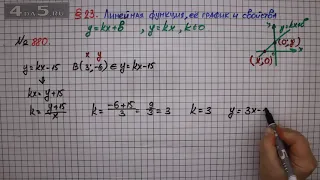 4DA5.ru
§ 23. Линейная функция, её график и свойства
y=kx+b , y=kx , k≠0
y=kx+b
(0;y)
(x;0)
№ 880.
x y
y=kx-15 B(3;-6) ∈ y=kx-15
kx=y+15
k=y+15/x k=-6+15/3=9/3=3 k=3 y=3x-